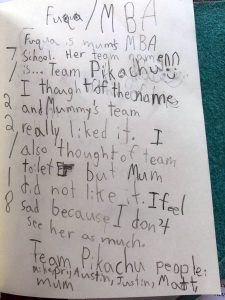 Fuqua/MBA
Fuqua is mums MBA
School. Her team name
is... Team Pikachu
I thought of the name,
and Mummy's team
really liked it. I
also thought of team
toilet but Mum
did not like it. I feel
sad because I don't
see her as much.
Team Pikachu people:
Austin, Justin, Matt,
mum
7/7/2/2/1/8